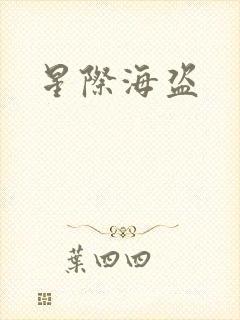 星際海盜
葉四四